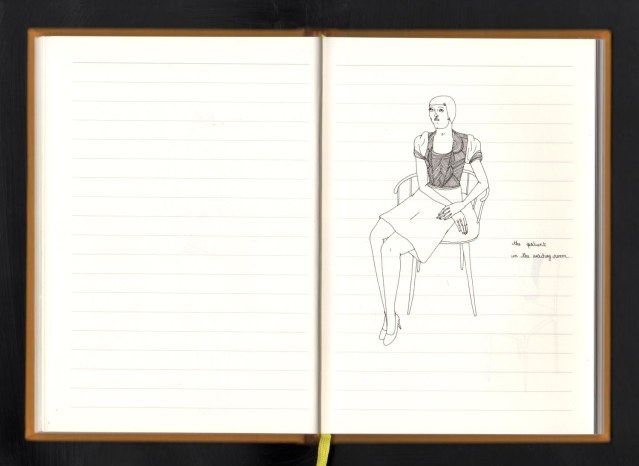 the patient
in the waiting room